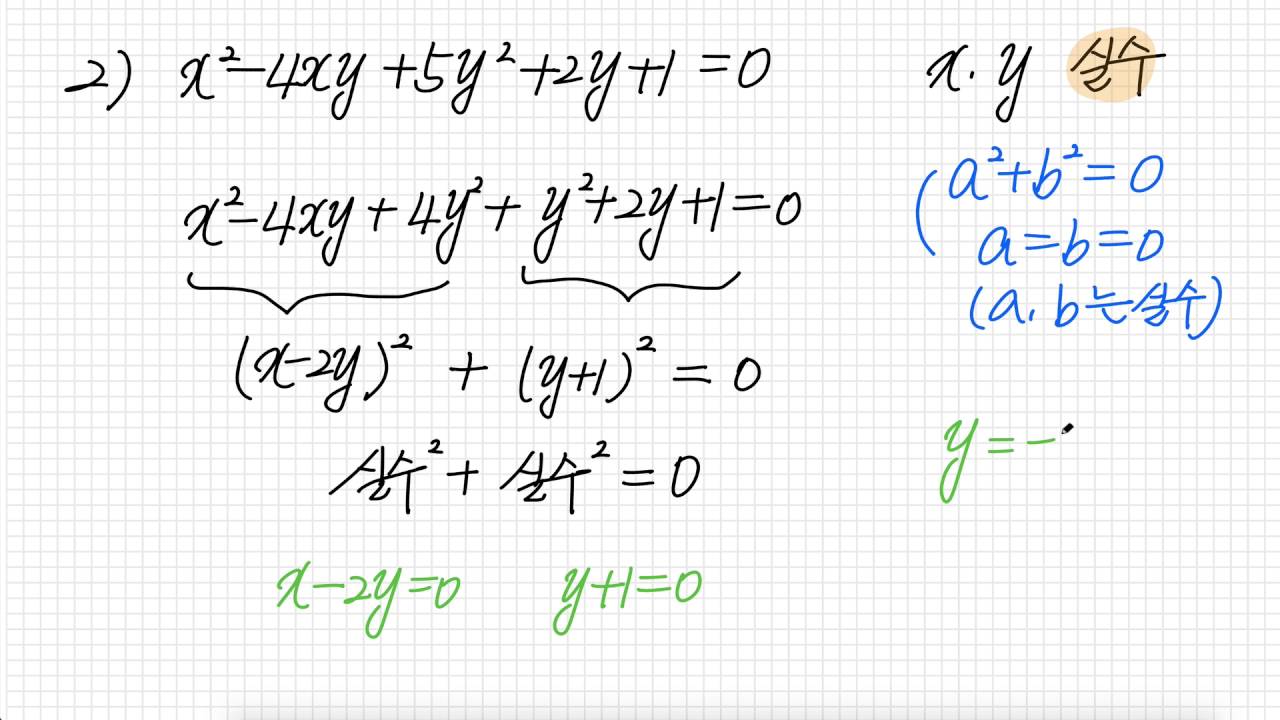 2) x²-4xy+5y²+2y+1=0 x. y 실수
x²-4xy+4y²+y²+2y+1=0
(x-2y)² + (y+1)² = 0
실수² + 실수² = 0
x-2y=0 y+1=0
a²+b²=0
a=b=0
(a, b는실수)
y=-